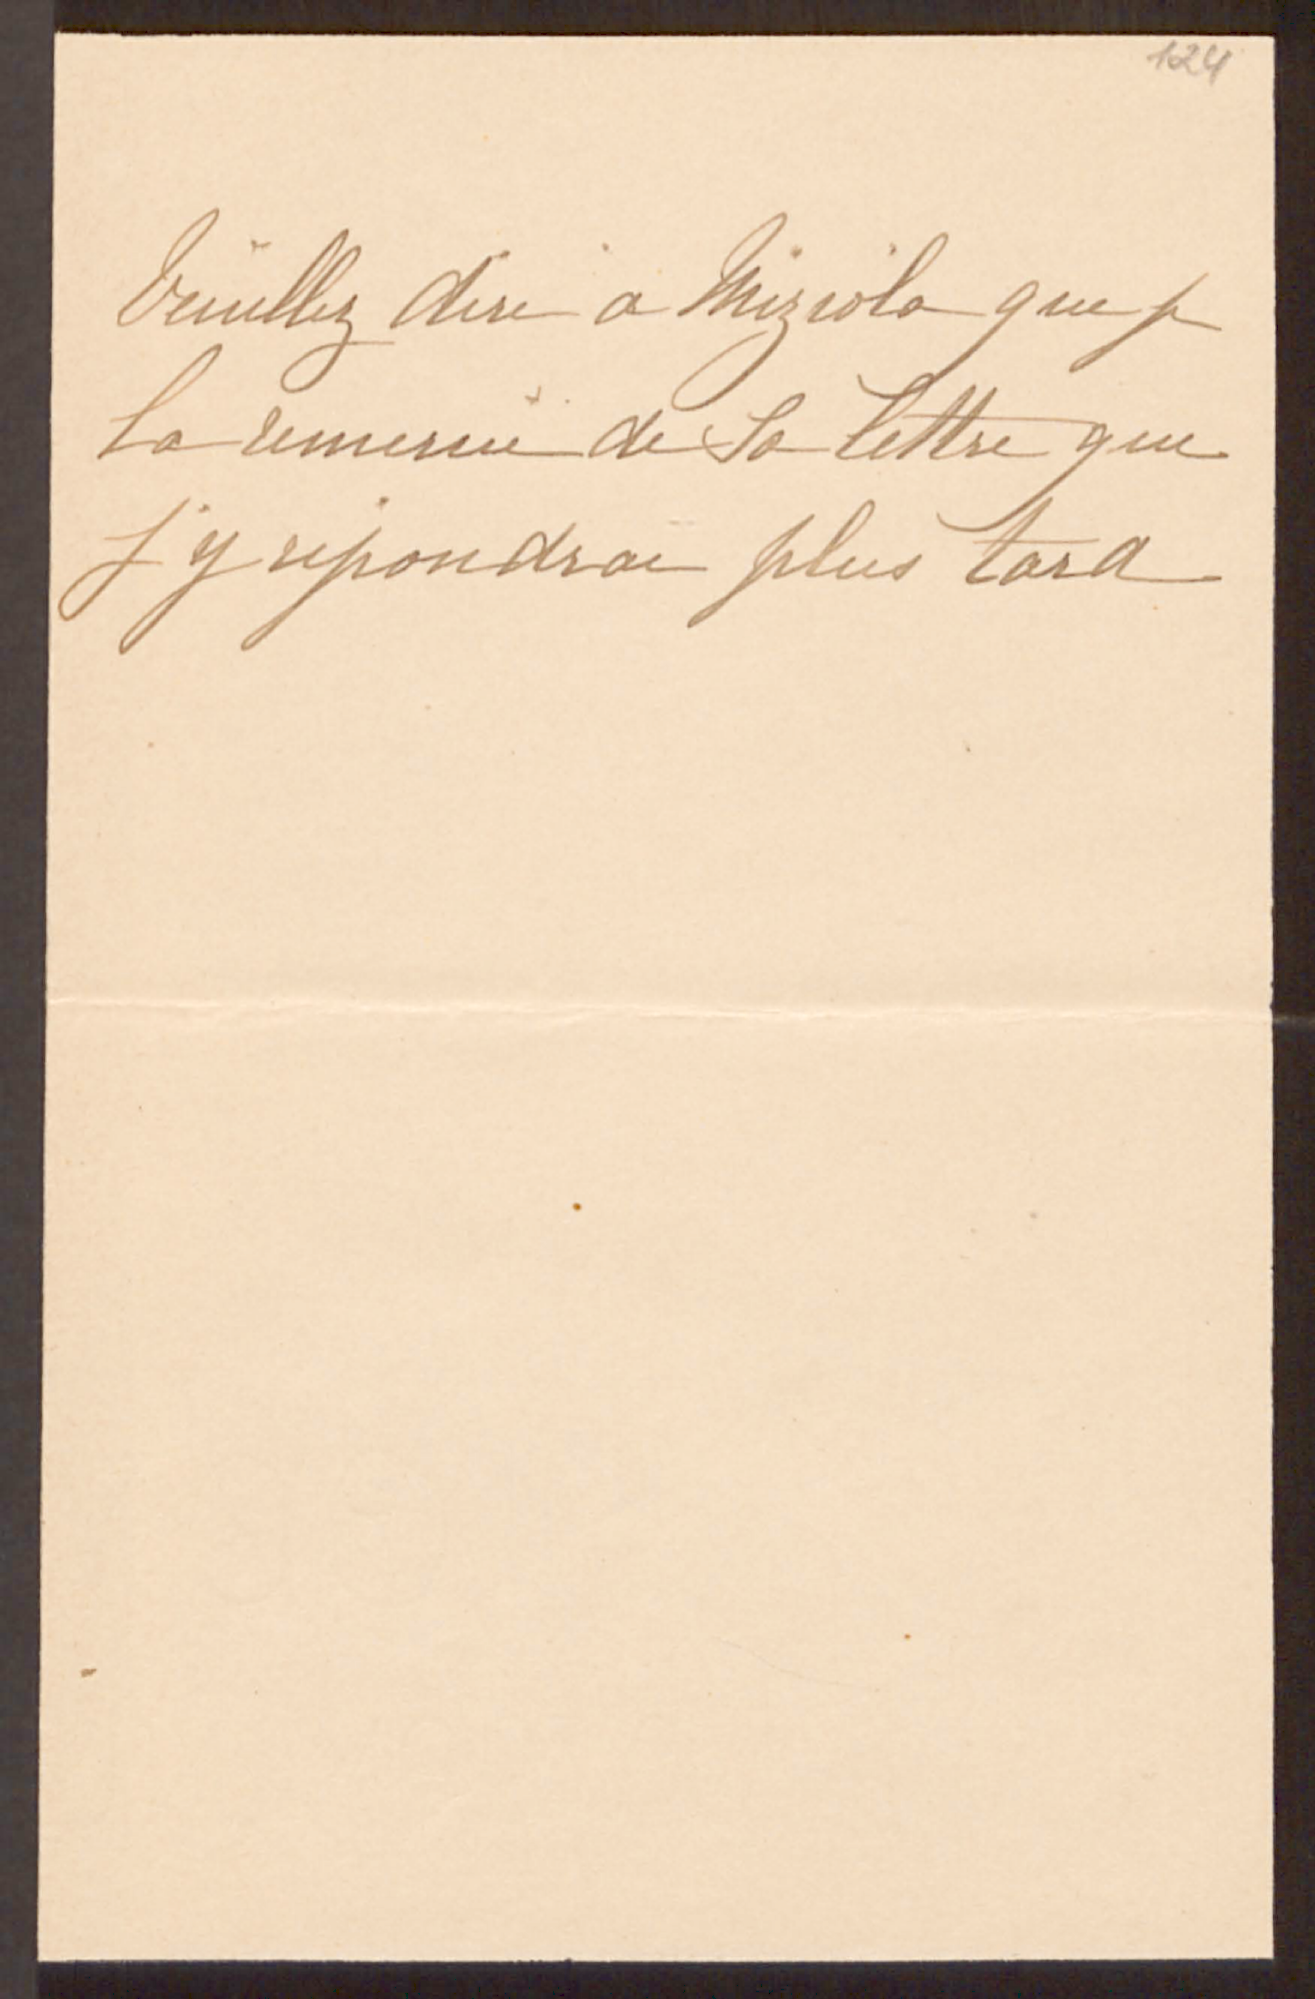 124
Veuillez dire a Miziola que je
la remercie de Sa lettre que
j'y repondrai plus tard